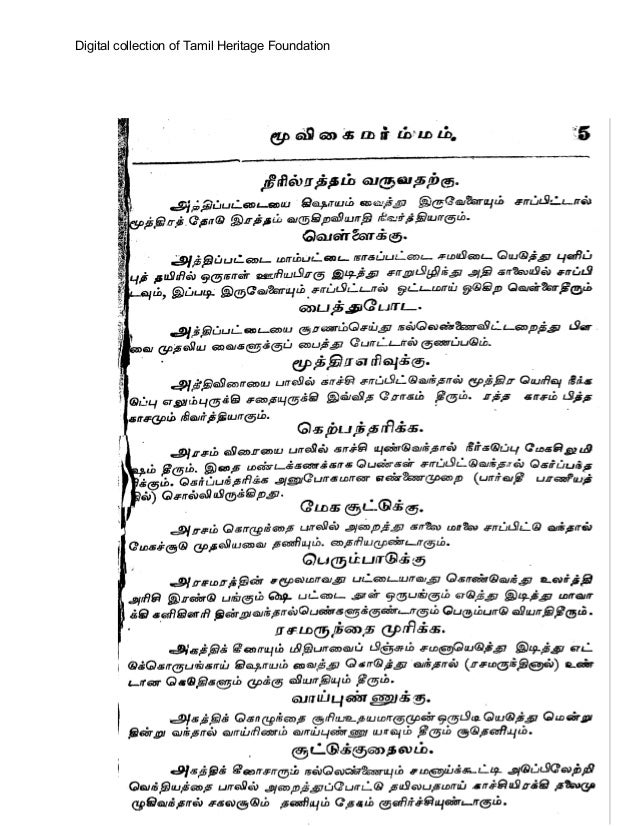 Digital collection of Tamil Heritage Foundation
மூலிகைமர்ம்மம். 5
நீரில்ரத்தம் வருவதற்கு.
அத்திப்பட்டையை கிஷாயம் வைத்து இருவேளையும் சாப்பிட்டால்
மூத்திரத் தோடு இரத்தம் வருகிறவியாதி நிவர்த்தியாகும்.
வெள்ளைக்கு.
அத்திப்பட்டை மாம்பட்டை நாகப்பட்டை சமயிடை யெடுத்து புளிப்
புத் தயிரில் ஒருநாள் ஊரியபிரகு இடித்து சாறுபிழிந்து அதி காலையில் சாப்பி
டவும், இப்படி இருவேளையும் சாப்பிட்டால் ஒட்டமாய் ஒடுகிற வெள்ளைதீரும்
பைத்துபோட.
அத்திப்பட்டையை சூரணம்செய்து நல்லெண்ணைவிட்டறைத்து பிள
வை முதலிய வைகளுக்குப் பைத்து போட்டால் குணப்படும்.
மூத்திரஎரிவுக்கு.
அத்திவிரையை பாலில் காச்சி சாப்பிட்டுவந்தால் மூத்திர யெரிவு நீக்க
டுப்பு எலும்புருக்கி சதையுருக்கி இவ்வித ரோகம் தீரும். ரத்த காசம் பித்த
காசமும் நிவர்த்தியாகும்.
கெற்பந்தரிக்க.
அரசம் விரையை பாலில் காச்சி யுண்டுவந்தால் நீர்கடுப்பு மேகசிலுமி
ஷம் தீரும். இதை மண்டக்கணக்காக பெண்கள் சாப்பிட்டுவந்தால் கெர்ப்பந்த
ரிக்கும். கெர்ப்பந்தரிக்க அனுபோகமான எண்ணைமுறை (பார்வதீ பரணீயத்
தில்) சொல்லியிருக்கிறது.
மேக சூட்டுக்கு.
அரசம் கொழுந்தை பாலில் அறைத்து காலை மாலை சாப்பிட்டு வந்தால்
மேகச்சூடு முதலியவை தணியும். தைரியமுண்டாகும்.
பெரும்பாடுக்கு
அரசமரத்தின் சமூலமாவது பட்டையாவது கொண்டுவந்து உலர்த்தி
அரிசி இரண்டு பங்கும் பட்டை தூள் ஒருபங்கும் எடுத்து இடித்து மாவா
க்கி களிகிளரி தின்றுவந்தால்பெண்களுக்குண்டாகும் பெரும்பாடு வியாதிதீரும்.
ரசமருந்தை முரிக்க.
அகத்திக் கீரையும் மிதிபாவைப் பிஞ்சும் சமனாயெடுத்து இடித்து எட்
டுக்கொருபங்காய் கிஷாயம் வைத்து கொடுத்து வந்தால் (ரசமருந்தினால்) உண்
டான கெடுதிகளும் முக்கு வியாதியும் தீரும்.
வாய்புண்ணுக்கு.
அகத்திக் கொழுந்தை சூரியஉதயமாகுமுன் ஒருபிடி யெடுத்து மென்று
தின்று வந்தால் வாய்ரிணம் வாய்புண்ணு யாவும் தீரும் சூடுதணியும்.
சூட்டுக்குதைலம்.
அகத்திக் கீரைசாரும் நல்லெண்ணையும் சமனாய்க்கூட்டி அடுப்பிலேற்றி
வெந்தியத்தை பாலில் அறைத்துப்போட்டு தயிலபதமாய் காச்சியிரக்கி தலைமு
முழுகிவந்தால் சகலசூடும் தணியும் தேகம் குளிர்ச்சியுண்டாகும்.